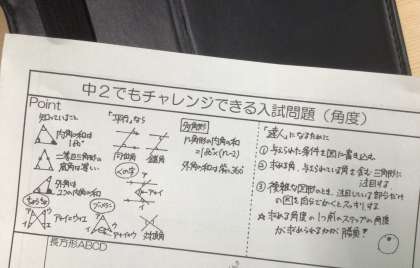 中2でもチャレンジできる入試問題(角度)
Point
知っていること
内角の和は
180°
二等辺三角形の
底角は等しい
外角は
2つの内角の和
ア+イ=ウ+エ
「平行」なら
同位角
錯角
くの字
ブーメラン
対頂角
多角形
n角形の内角の和
=180°×(n-2)
外角の和は常に360°
「達人」になるために
① 与えられた条件を図に書き込む
② 求める角、与えられている角を含む三角形に
注目する
③ 複雑な図形のとき、注目している部分だけ
の図を自分でかくとスッキリする
☆ 求める角度の1つ前のステップの角度
が求められるかが勝負!
長方形ABCD